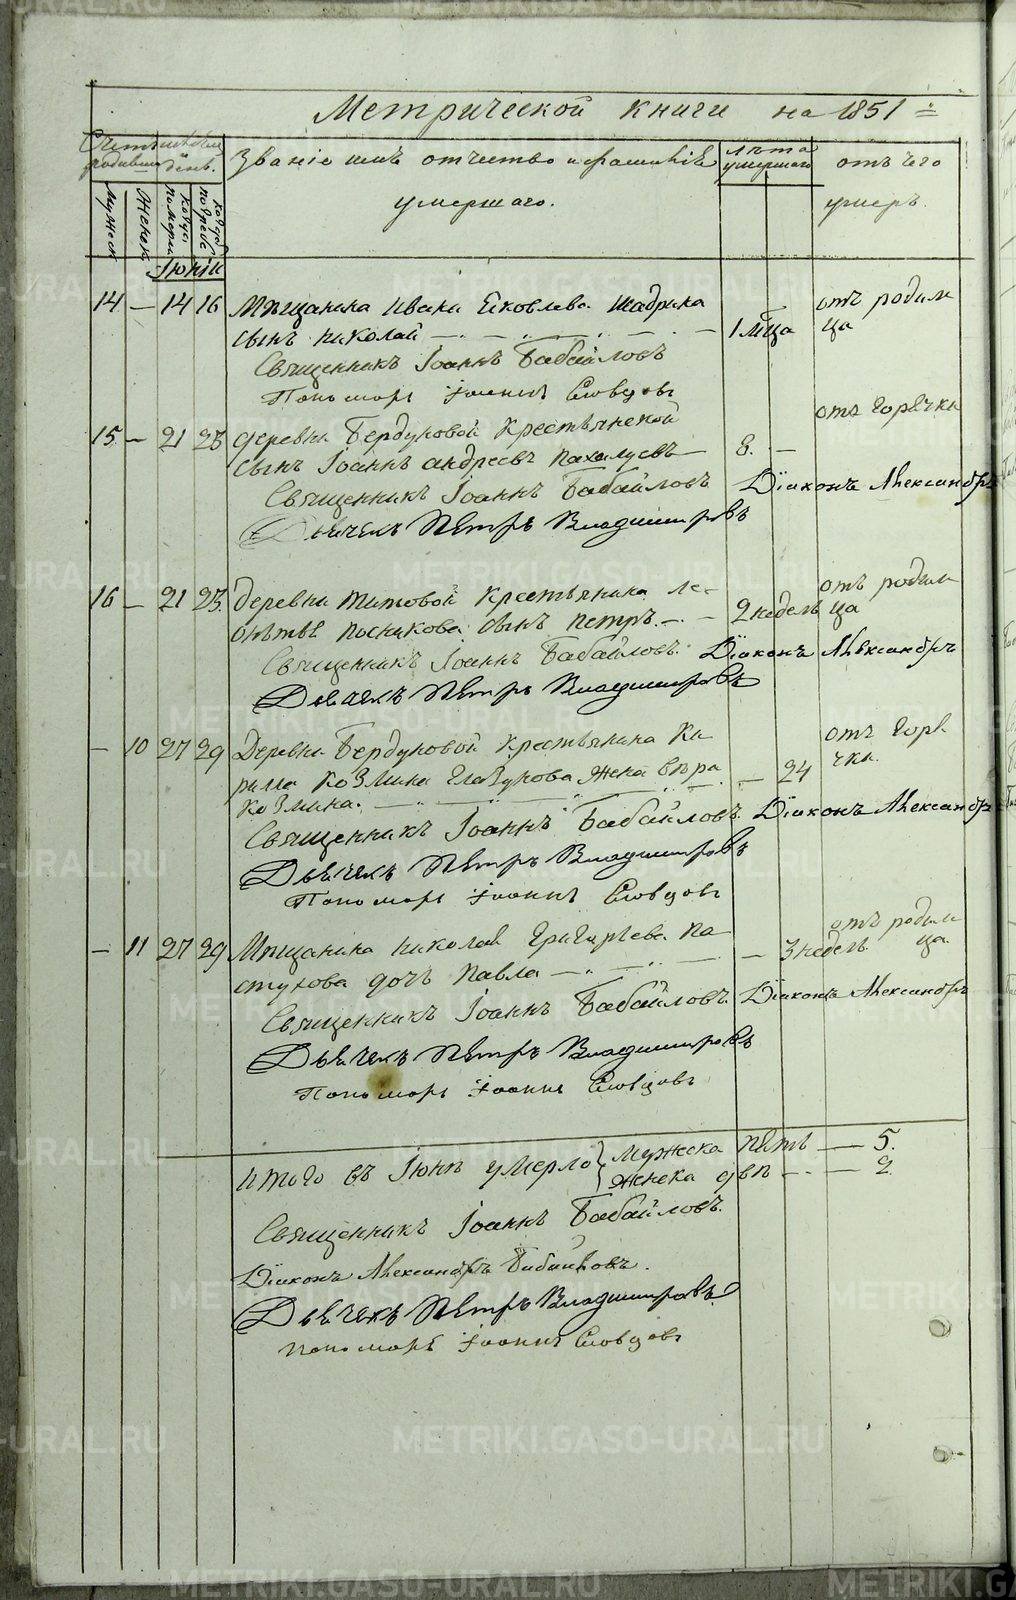 Метрической книги на 1851
Званіе имя отчество и фамиліе
умершаго.
лѣта
умершаго
отъ чего
умеръ.
Мужеск
Женск
когда
померъ
когда
погребе
Іюнь
14 — 14 16 Мѣщанина Ивана Яковлева Шадрина
сынъ Николай 1 мца
отъ родим
ца
Священникъ Іоаннъ Бабайловъ
Пономарь Іоаннъ Словцовъ
15 — 21 23 деревни Бердуковой Крестьянской
сынъ Іоаннъ Андреевъ 8. —
отъ горячки
Священникъ Іоаннъ Бабайловъ Діаконъ Александръ
Дьячекъ Петръ Владимировъ
16 — 21 23. деревни Титовой Крестьянина Ле-
онтья Посникова сынъ Петръ. 2 недель
отъ родим
ца
Священникъ Іоаннъ Бабайловъ Діаконъ Александръ
Дьячекъ Петръ Владимировъ
— 10 27 29 Деревни Бердуковой Крестьянина Ки
рила Козмина Глазунова жена Вѣра
Козмина. — 24
отъ горя
чки.
Священникъ Іоаннъ Бабайловъ Діаконъ Александръ
Дьячекъ Петръ Владимировъ
Пономарь Іоаннъ Словцовъ
— 11 27 29 Мѣщанина Николая Григорьева Па
стухова дочь Павла — 3 недель
отъ родим
ца
Священникъ Іоаннъ Бабайловъ Діаконъ Александръ
Дьячекъ Петръ Владимировъ
Пономарь Іоаннъ Словцовъ
Итого въ Іюнѣ умерло Мужеска пять — 5.
Женска двѣ — 2
Священникъ Іоаннъ Бабайловъ.
Діаконъ Александръ Бабайловъ.
Дьячекъ Петръ Владимировъ
Пономарь Іоаннъ Словцовъ
METRIKI.GASO-URAL.RU